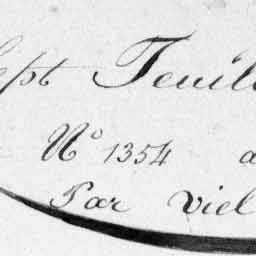 Sept Feuil
N° 1354 a
Par Viel